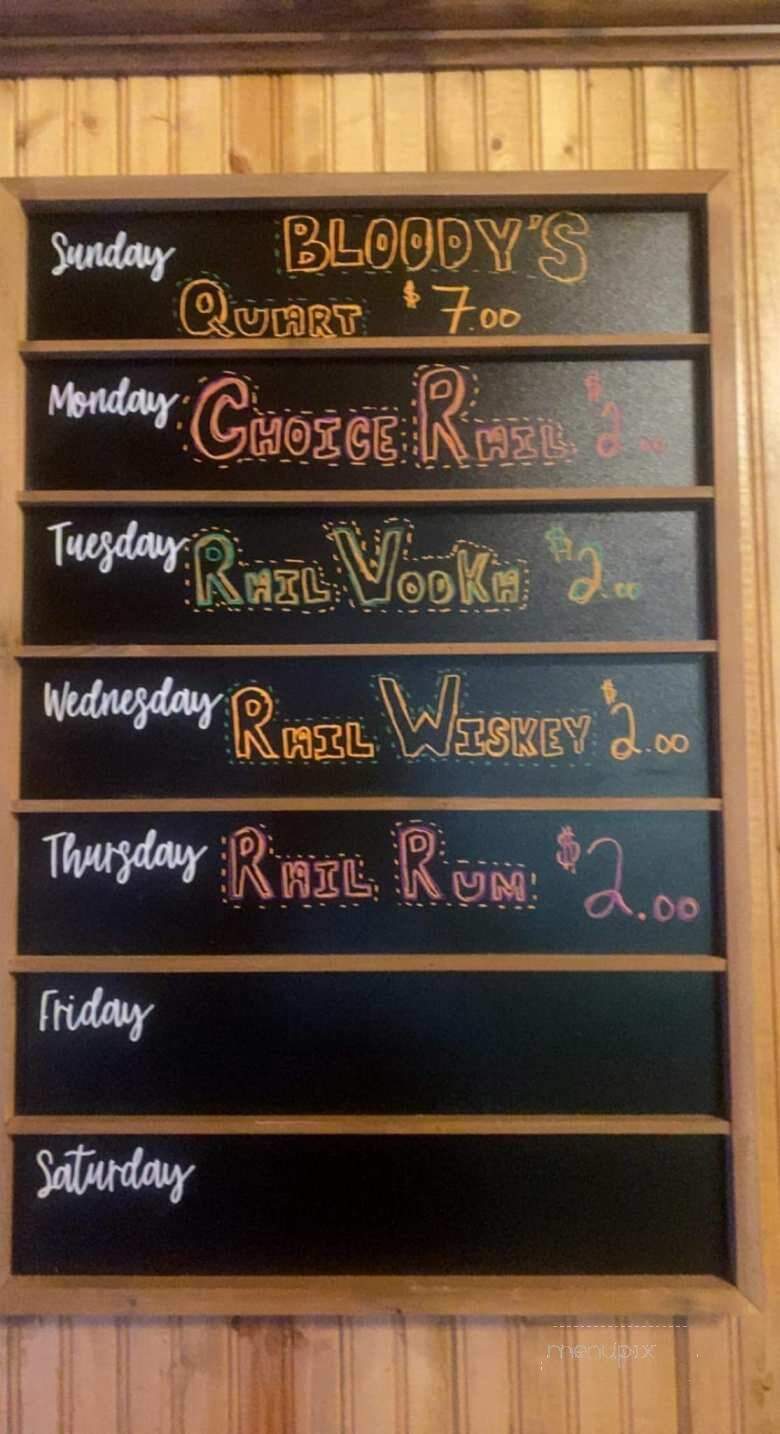 Sunday BLOODY'S
QUART $7.00
Monday CHOICE RAIL $2.00
Tuesday RAIL VODKA $2.00
Wednesday RAIL WISKEY $2.00
Thursday RAIL RUM $2.00
Friday
Saturday
menupix